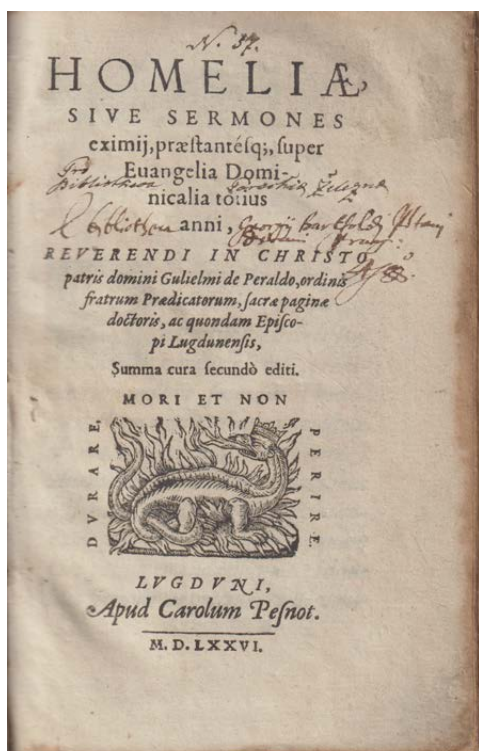 N. 37.
HOMELIÆ,
SIVE SERMONES
eximij, præstantésq;, super
Euangelia Domi-
Pro
Bibliotheca
nicalia totius
anni,
REVERENDI IN CHRISTO
patris domini Gulielmi de Peraldo, ordinis
fratrum Prædicatorum, sacræ paginæ
doctoris, ac quondam Episco-
pi Lugdunensis,
Summa cura secundò editi.
MORI ET NON
DVRARE,
PERIRE.
LVGDVNI,
Apud Carolum Pesnot.
M. D. LXXVI.